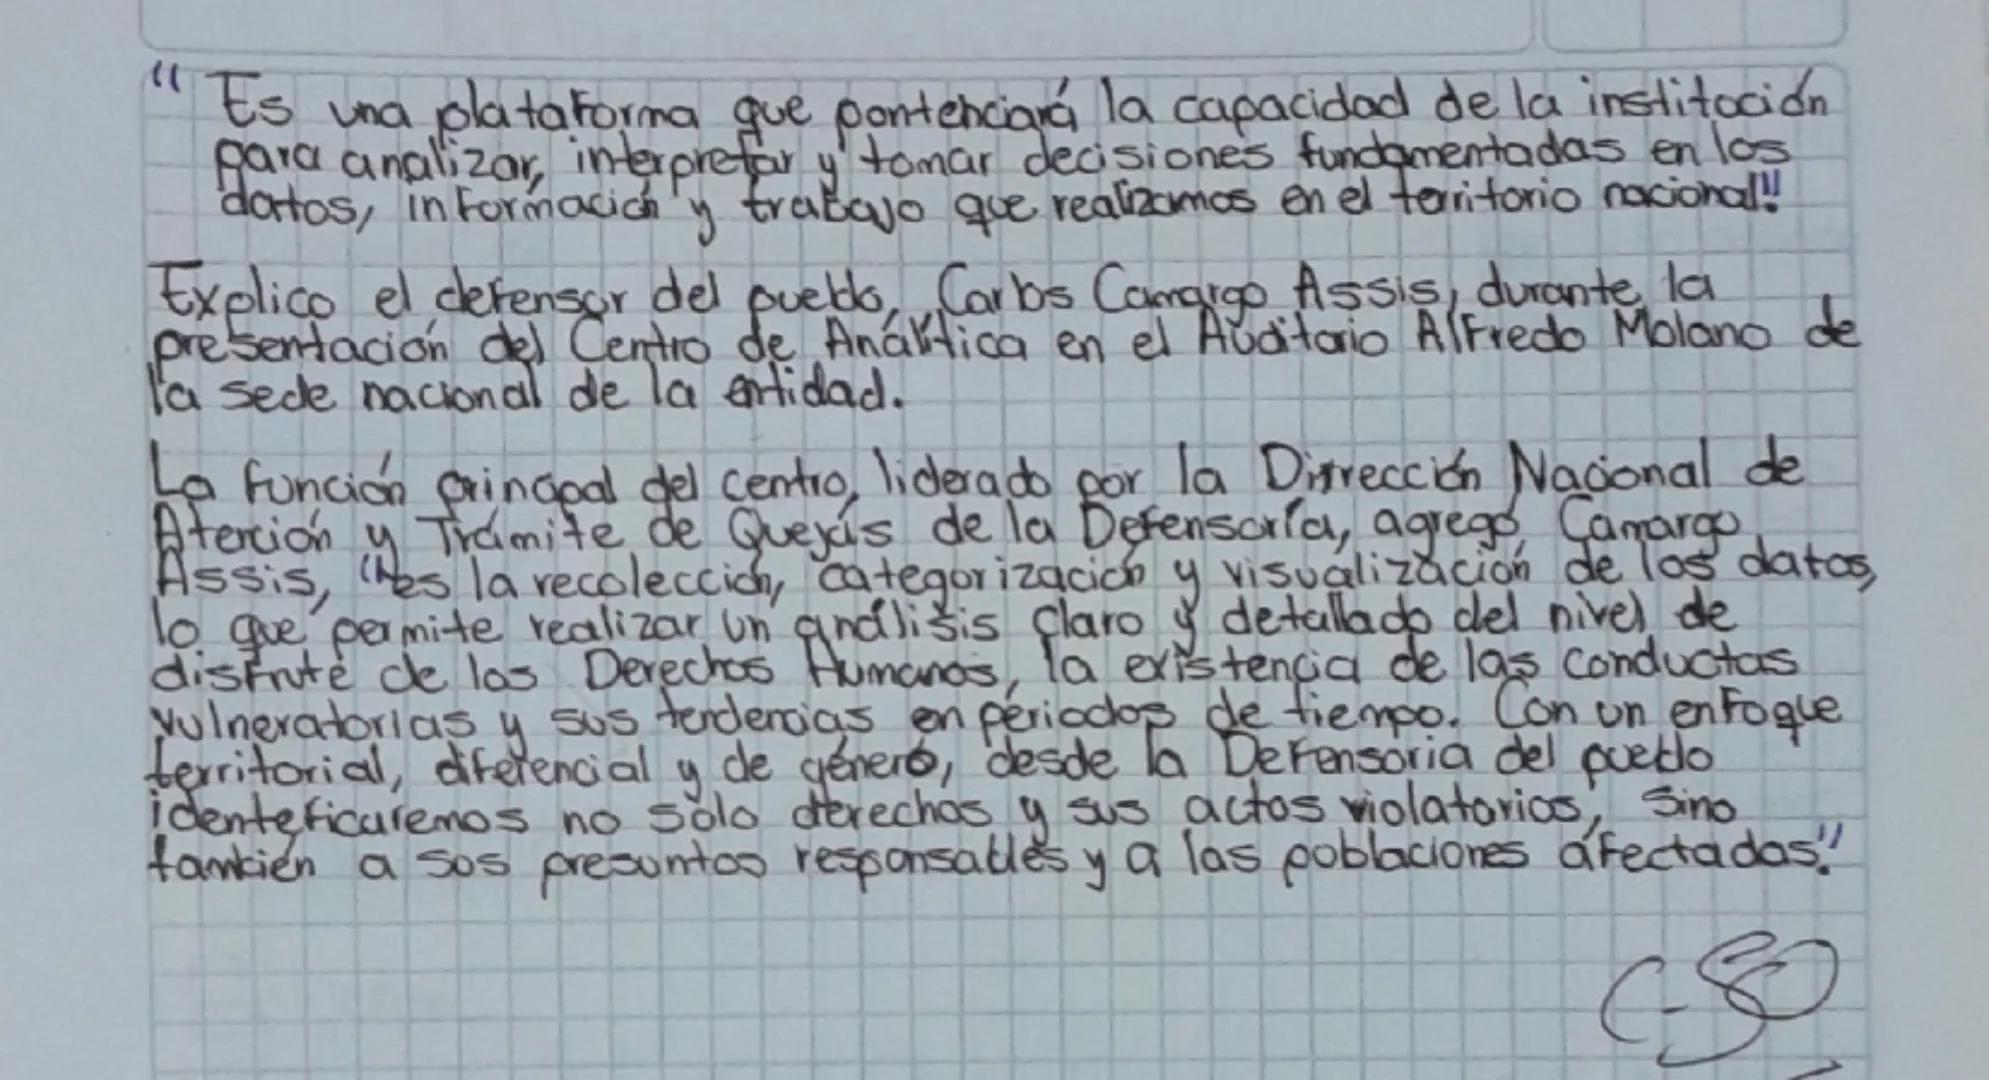 " Es una plataforma que pontenciará la capacidad de la institoción
para analizar, interpretar y tomar decisiones fundamentadas en los
datos, información y trabajo que realizamos en el territorio nacional".
Explico el defensor del pueblo, Carlos Camargo Assis, durante la
presentación del Centro de Analítica en el Auditorio Alfredo Molano de
la sede nacional de la entidad.
La función principal del centro, liderado por la Dirrección Nacional de
Atención y Trámite de Quejas de la Defensoría, agregó Camargo
Assis, "es la recolección, categorización y visualización de los datos,
lo que permite realizar un análisis claro y detallado del nivel de
disfrute de los Derechos Humanos, la existencia de las conductas
vulneratorias y sus tendencias en periodos de tiempo. Con un enfoque
territorial, diferencial y de género, desde la Defensoria del pueblo
identeficaremos no sólo derechos y sus actos violatorios, sino
también a sos presuntos responsables y a las poblaciones afectadas".